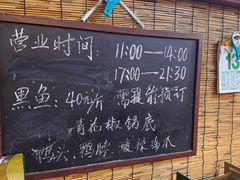 营业时间: 11:00—14:00
17:00—21:30
黑鱼: 40元/斤 需提前预订
青花椒锅底
鸭头、鸭脖、酸辣鸡爪
13